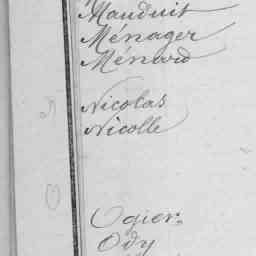 Mauduit
Ménager
Ménard
N
Nicolas
Nicolle
O
Ogier
Ody